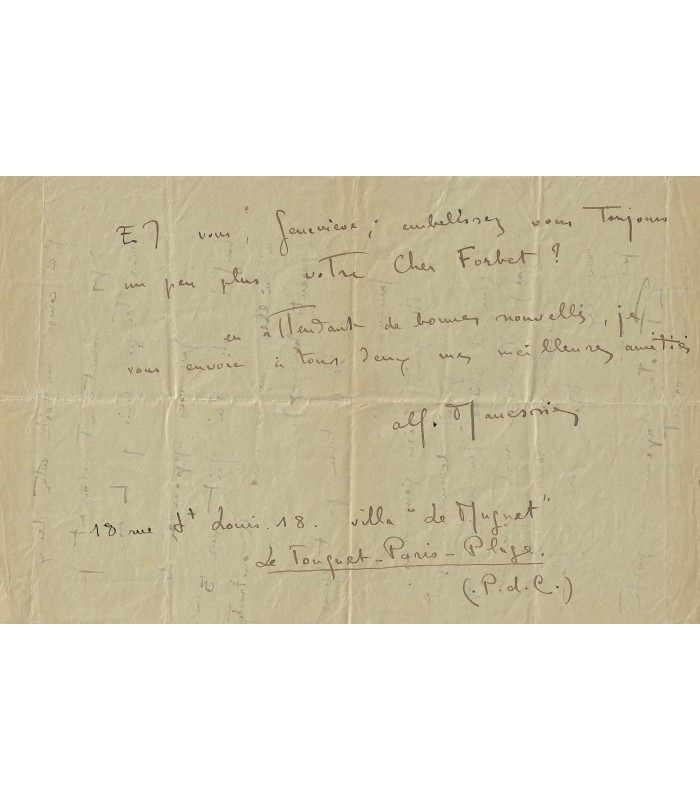 Et vous, Geneviève, embellissez vous toujours
un peu plus votre cher Forbet ?
en attendant de bonnes nouvelles, je
vous envoie à tous deux mes meilleures amitiés
alf. Manessier
18 rue St Louis. 18. villa "Le Muguet"
Le Touquet-Paris-Plage.
(.P.d.C.)